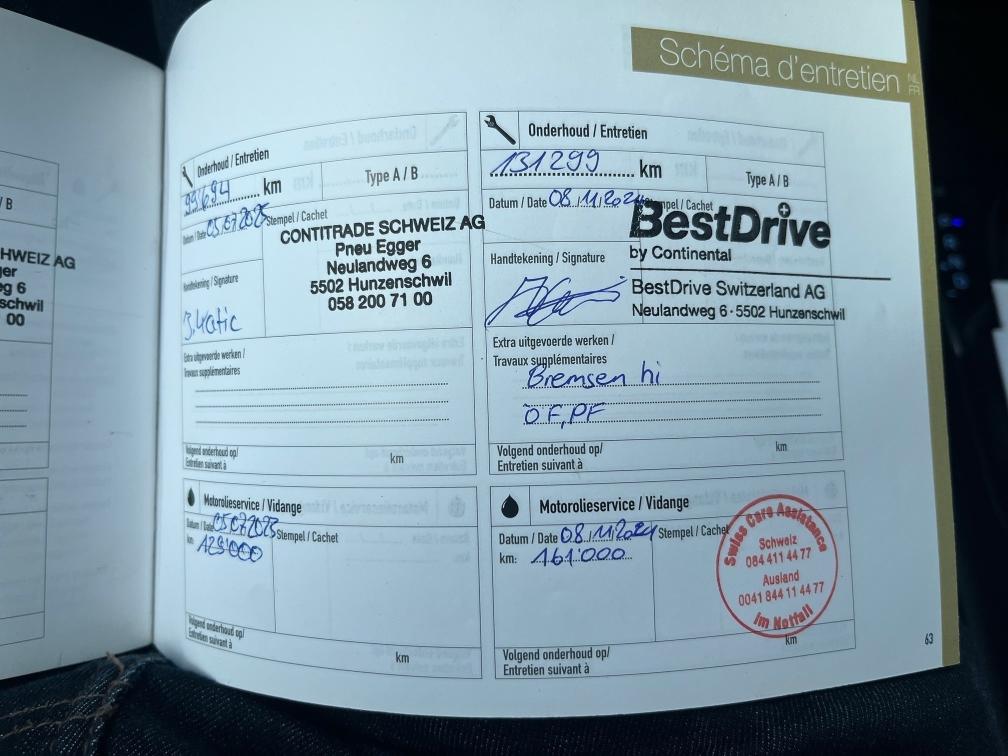 Schéma d'entretien
NL
FR
/ B
HWEIZ AG
ger
eg 6
schwil
00
Onderhoud / Entretien
99'694 km
Type A / B
Datum / Date 05.07.2023
Stempel / Cachet
CONTITRADE SCHWEIZ AG
Pneu Egger
Neulandweg 6
5502 Hunzenschwil
058 200 71 00
Handtekening / Signature
Extra uitgevoerde werken /
Travaux supplémentaires
Volgend onderhoud op/
Entretien suivant à
km
Motorolieservice / Vidange
Datum / Date 05.07.2023 Stempel / Cachet
km: 129'000
Volgend onderhoud op/
Entretien suivant à
km
Onderhoud / Entretien
131299 km
Type A / B
Datum / Date 08.11.2024 Stempel / Cachet
BestDrive
by Continental
BestDrive Switzerland AG
Neulandweg 6 · 5502 Hunzenschwil
Handtekening / Signature
Extra uitgevoerde werken /
Travaux supplémentaires
Bremsen hi
ÖF, PF
Volgend onderhoud op/
Entretien suivant à
km
Motorolieservice / Vidange
Datum / Date 08.11.2024 Stempel / Cachet
km: 161'000
Swiss Care Assistance
Schweiz
084 411 44 77
Ausland
0041 844 11 44 77
Im Notfall
Volgend onderhoud op/
Entretien suivant à
km
63